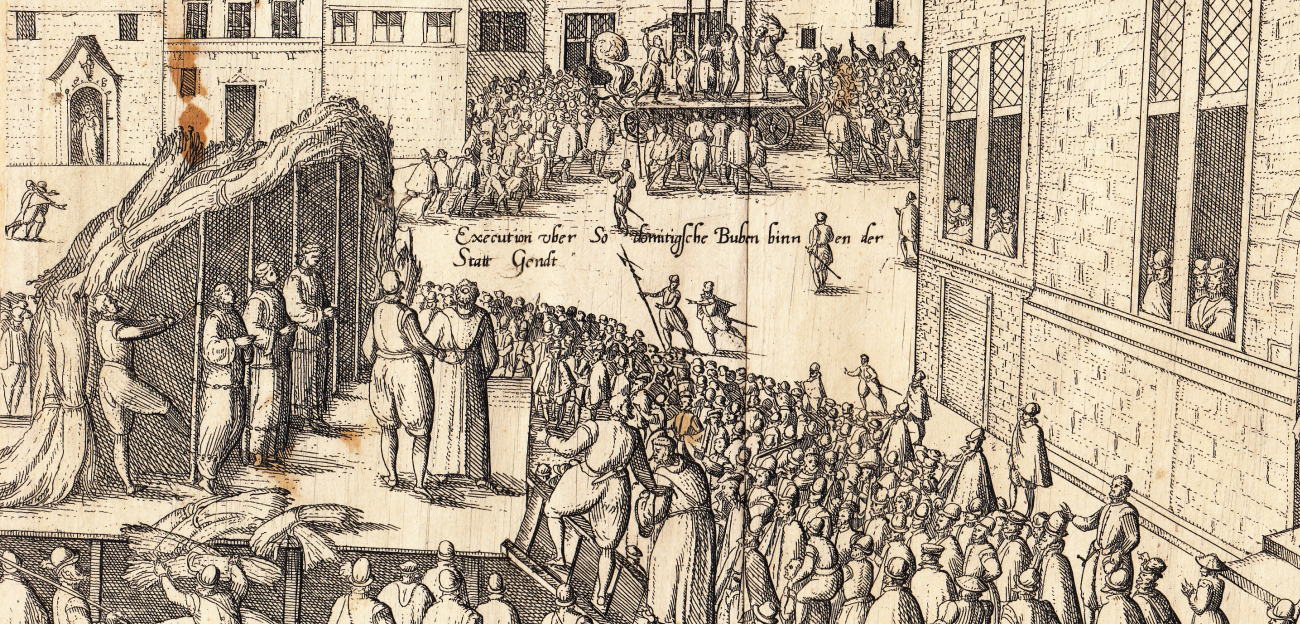 Execution vber Sodomitigsche Buben binnen der
Statt Gendt